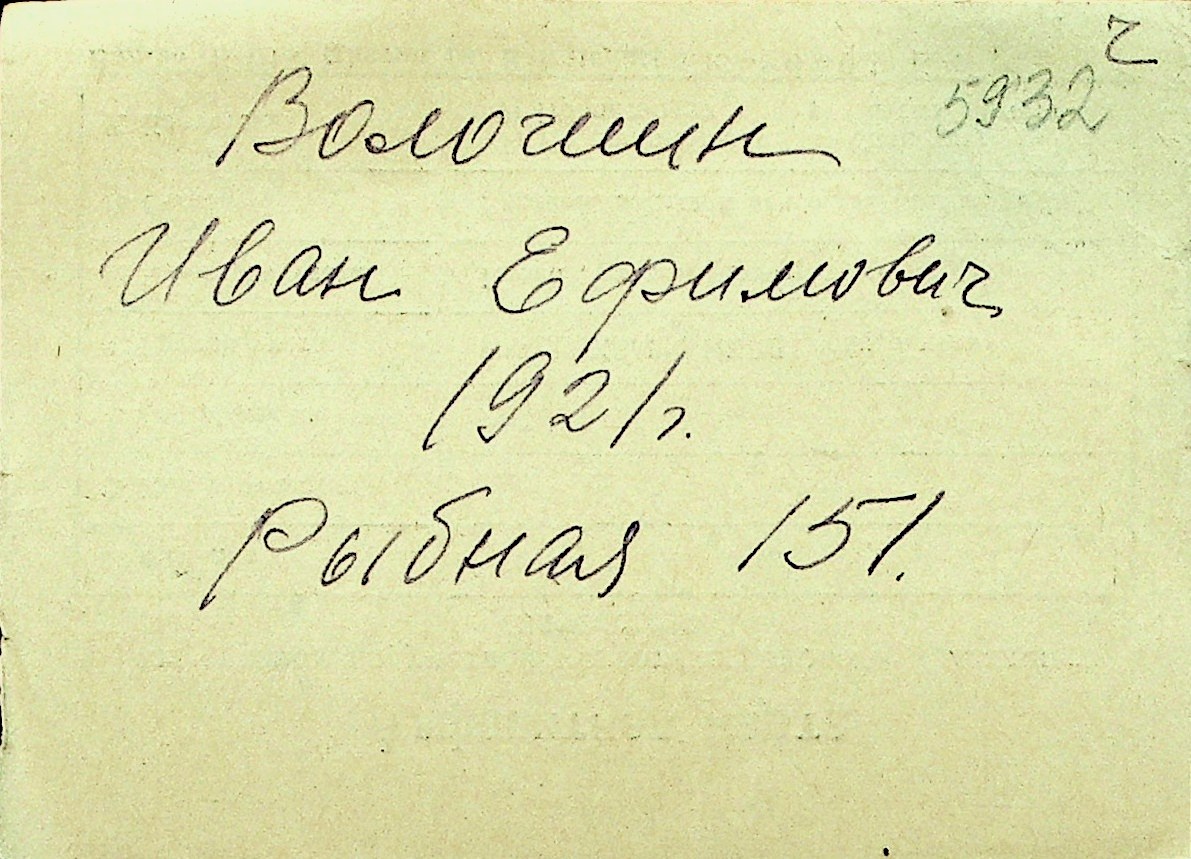 ч
5932
Волошин
Иван Ефимович
1921г.
Рыбная 151.